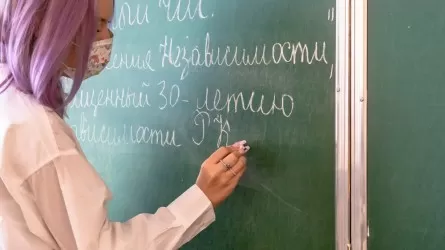 ный час. "
ения Независимости,
щенный 30-летию
ависимости РК